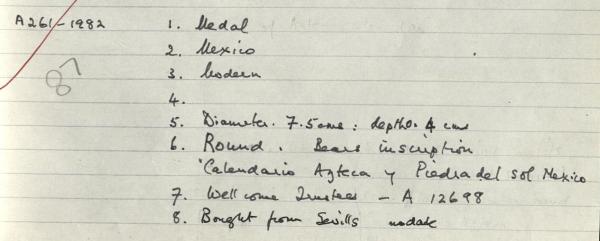 A261-1982 1. Medal
2. Mexico
87 3. Modern
4.
5. Diameter. 7.5 cms : depth. 4 cms
6. Round. Bears inscription
'Calendario Azteca y Piedra del sol Mexico
7. Wellcome Trustees - A 12698
8. Bought from Sevills nodate